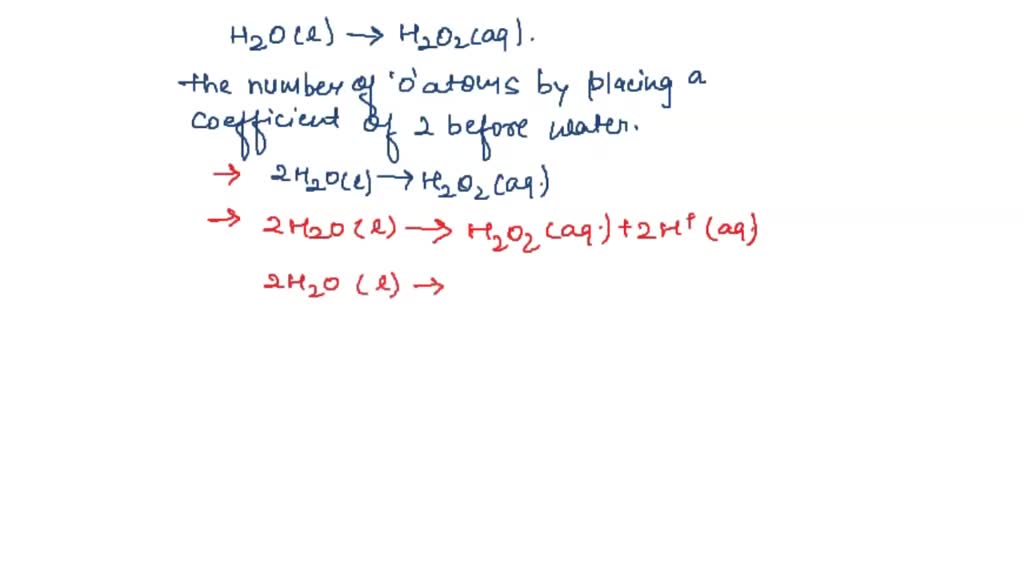 H₂O(l) → H₂O₂(aq).
the number of 'O' atoms by placing a
coefficient of 2 before water.
→ 2H₂O(l) → H₂O₂(aq.)
→ 2H₂O(l) → H₂O₂(aq.) + 2H⁺(aq)
2H₂O(l) →